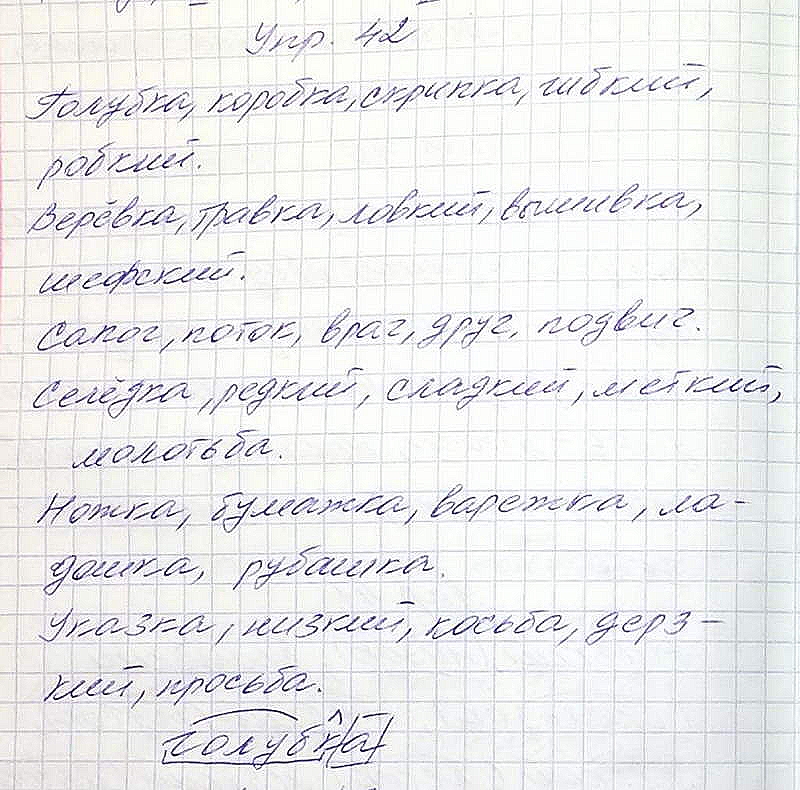 Упр. 42
Голубка, коробка, скрипка, гибкий,
робкий.
Верёвка, травка, ловкий, вышивка,
шефский.
Сапог, поток, враг, друг, подвиг.
Селёдка, редкий, сладкий, меткий,
молотьба.
Ножка, бумажка, варежка, ла-
дошка, рубашка.
Указка, низкий, косьба, дерз-
кий, просьба.
голубка